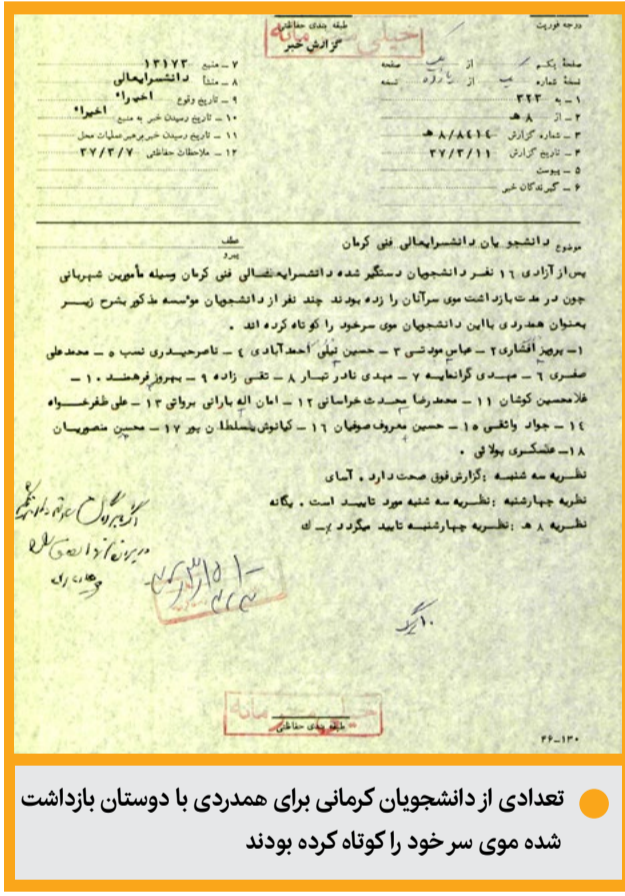 درجه فوریت
طبقه بندی حفاظتی
خیلی محرمانه
گزارش خبر
صفحه یکم از یک صفحه
نسخه شماره از نسخه
۱ – به ۳۲۳
۲ – از ۸ هـ
۳ – شماره گزارش ۸/۸۴۱۴ هـ
۴ – تاریخ گزارش ۳۷/۳/۱۱
۵ – پیوست
۶ – گیرندگان خبر
۷ – منبع ۱۳۱۷۳
۸ – منشأ دانشسرایعالی
۹ – تاریخ وقوع اخیرا"
۱۰ – تاریخ رسیدن خبر به منبع اخیرا"
۱۱ – تاریخ رسیدن خبر برهبر عملیات محل
۱۲ – ملاحظات حفاظتی ۳۷/۳/۷
موضوع دانشجویان دانشسرایعالی فنی کرمان
عطف
پیرو
پس از آزادی ۱۶ نفر دانشجویان دستگیر شده دانشسرایعالی فنی کرمان وسیله مأمورین شهربانی
چون در مدت بازداشت موی سرآنان را زده بودند چند نفر از دانشجویان موسسه مذکور بشرح زیر
بعنوان همدردی بااین دانشجویان موی سرخود را کوتاه کرده اند .
۱– پرویز افشاری ۲– عباس مودتی ۳ – حسین نیلی احمدآبادی ۴ – ناصرحیدری نسب ۵ – محمدعلی
صفری ۶ – مهدی گرانمایه ۷ – مهدی نادر تبار ۸ – تقی زاده ۹ – بهروز فرهمند ۱۰ –
غلامحسین کوشان ۱۱ – محمد رضا محدث خراسانی ۱۲ – امان اله بارانی بروانی ۱۳ – علی ظفرخواه
۱۴ – جواد واثقی ۱۵ – حسین معروف صوفیان ۱۶ – کیانوش سلطان پور ۱۷ – محسن منصوریان
۱۸– عسکری بولائی .
نظریه سه شنبه : گزارش فوق صحت دارد . آسای
نظریه چهارشنبه : نظریه سه شنبه مورد تایید است . یگانه
نظریه ۸ هـ : نظریه چهارشنبه تایید میگردد
خیلی محرمانه
طبقه بندی حفاظتی
۳۶–۱۳۰
تعدادی از دانشجویان کرمانی برای همدردی با دوستان بازداشت
شده موی سر خود را کوتاه کرده بودند